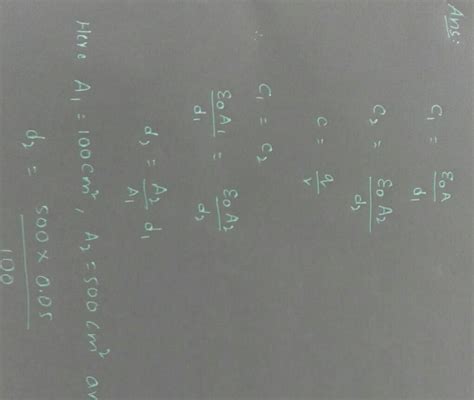 Ans:
C₁ = ε₀A / d₁
C₂ = ε₀A₂ / d₂
C = q / v
∴ C₁ = C₂
ε₀A₁ / d₁ = ε₀A₂ / d₂
d₂ = A₂ / A₁ d₁
Here A₁ = 100 cm², A₂ = 500 cm² an
d₂ = 500 × 0.05 / 100